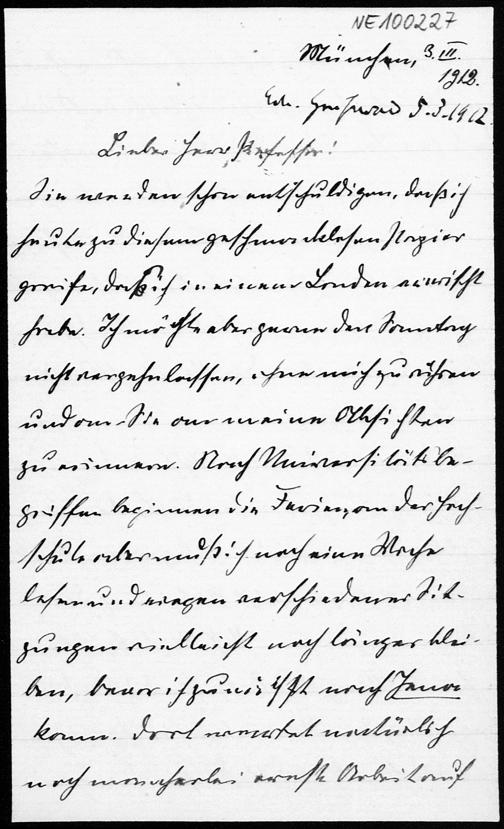 NE100227
München, 3.III.
1912.
5.3.1912.
Lieber Herr Professor!
Sie werden schon entschuldigen, daß ich
heute zu diesem geschmacklosen Papier
greife, daß ich in einem Laden erwischt
habe. Ich möchte aber gerne den Sonntag
nicht vergehn lassen, ohne mich zu rühren
und an Sie an meine Absichten
zu erinnern. Nach Universitätsbe-
griffen beginnen die Ferien, an der Hoch-
schule aber muß ich noch eine Woche
lesen und wegen verschiedener Sit-
zungen vielleicht noch länger blei-
ben, bevor ich zunächst nach Jena
kann. Dort wartet natürlich
noch mancherlei ernste Arbeit auf